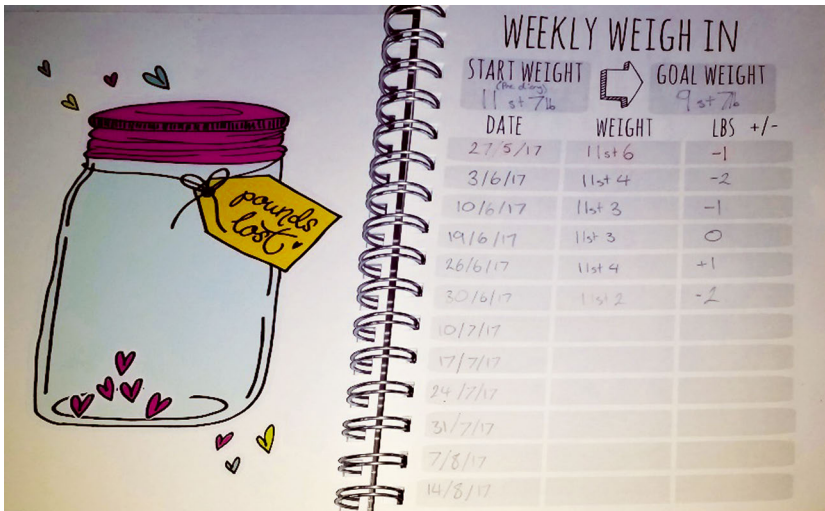 pounds
lost
WEEKLY WEIGH IN
START WEIGHT GOAL WEIGHT
(Pre diary)
11st 7lb 9st 7lb
DATE WEIGHT LBS +/-
27/5/17 11st 6 -1
3/6/17 11st 4 -2
10/6/17 11st 3 -1
19/6/17 11st 3 0
26/6/17 11st 4 +1
30/6/17 11st 2 -2
10/7/17
17/7/17
24/7/17
31/7/17
7/8/17
14/8/17